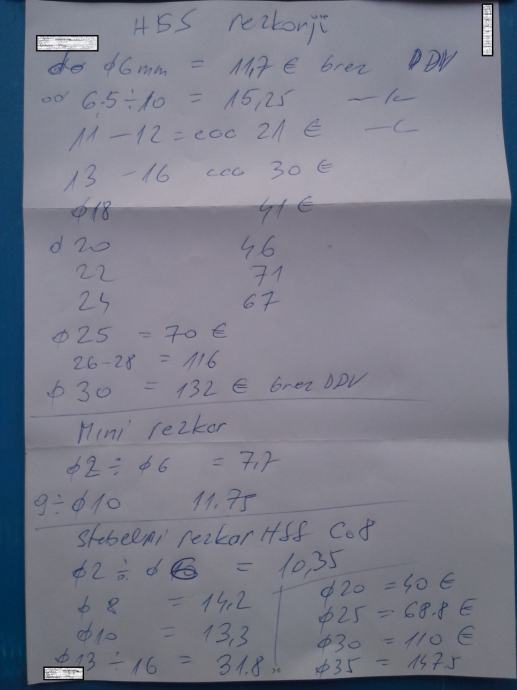 HSS rezkarji
do φ6mm = 11,7 € brez DDV
od 6,5÷10 = 15,25 —||—
11 – 12 = cca 21 €
13 – 16 cca 30 €
φ18 41 €
φ 20 46
22 71
24 67
φ25 = 70 €
26-28 = 116
φ 30 = 132 € brez DDV
Mini rezkar
φ2 ÷ φ6 = 7,7
9÷φ10 11.75
Stebelni rezkar HSS Co8
φ2 ÷ φ 6 = 10,35
φ 8 = 14,2
φ10 = 13,3
φ13 ÷ 16 = 31.8
φ20 = 40 €
φ25 = 68.8 €
φ30 = 110 €
φ35 = 147.5